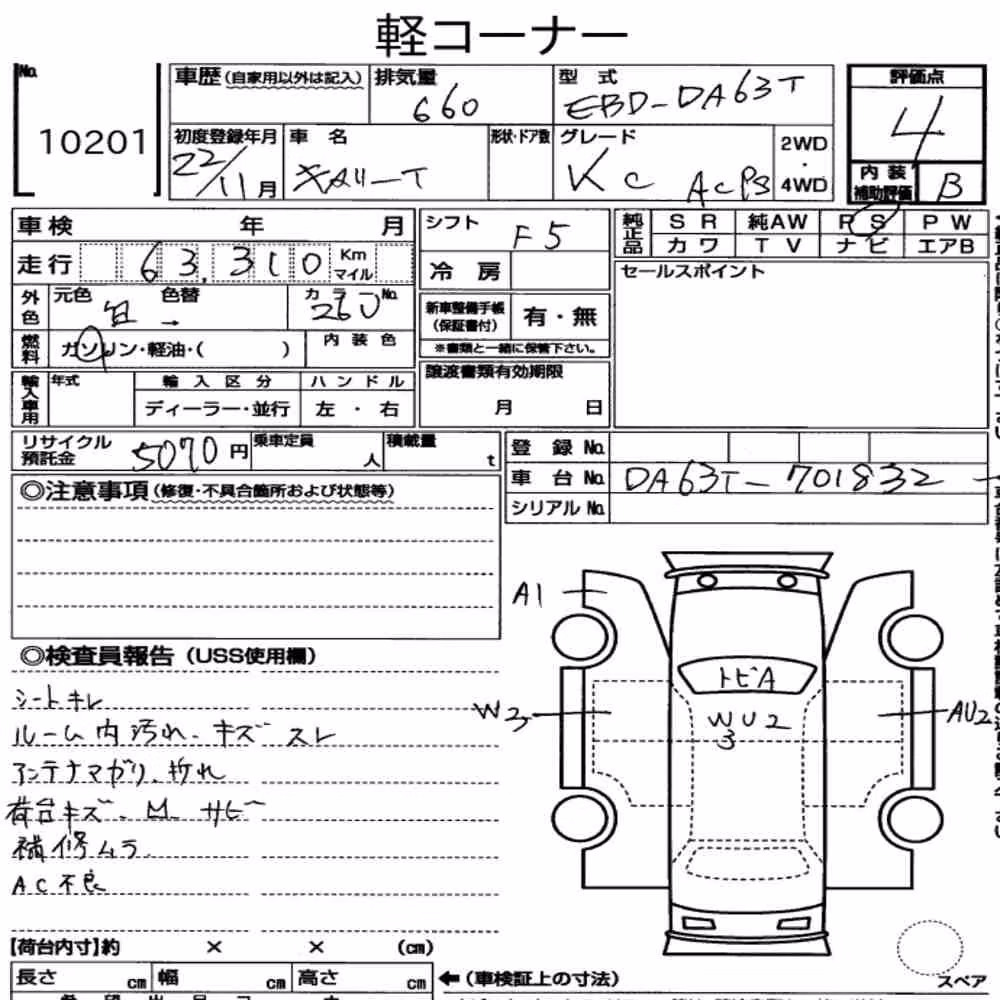 軽コーナー
No. 10201
車歴(自家用以外は記入) 排気量 660 型式 EBD-DA63T
評価点 4
初度登録年月 22/11月 車名 キャリーT 形状・ドア数 グレード KC ACPS 2WD・4WD
内装補助評価 B
車検 年 月
走行 63,310 Km マイル
外色 元色 白 色替 → カラーNo. 26U
燃料 ガソリン・軽油・( ) 内装色
輸入車用 年式 輸入区分 ハンドル
ディーラー・並行 左・右
シフト F5
冷房
新車整備手帳(保証書付) 有・無
※書類と一緒に保管下さい。
譲渡書類有効期限
月 日
純正品 SR 純AW PS PW
カワ TV ナビ エアB
セールスポイント
リサイクル預託金 5070円 乗車定員 人 積載量 t
登録No.
車台No. DA63T-701832
シリアルNo.
◎注意事項(修復・不具合箇所および状態等)
◎検査員報告(USS使用欄)
シートキレ
ルーム内汚れ、キズ スレ
アンテナマガリ、折れ
荷台キズ、凹、サビ
補修ムラ
AC不良
A1
トビA
W3
WU2
3
AU2
【荷台内寸】約 × × (cm)
長さ cm 幅 cm 高さ cm
←(車検証上の寸法)
スペア